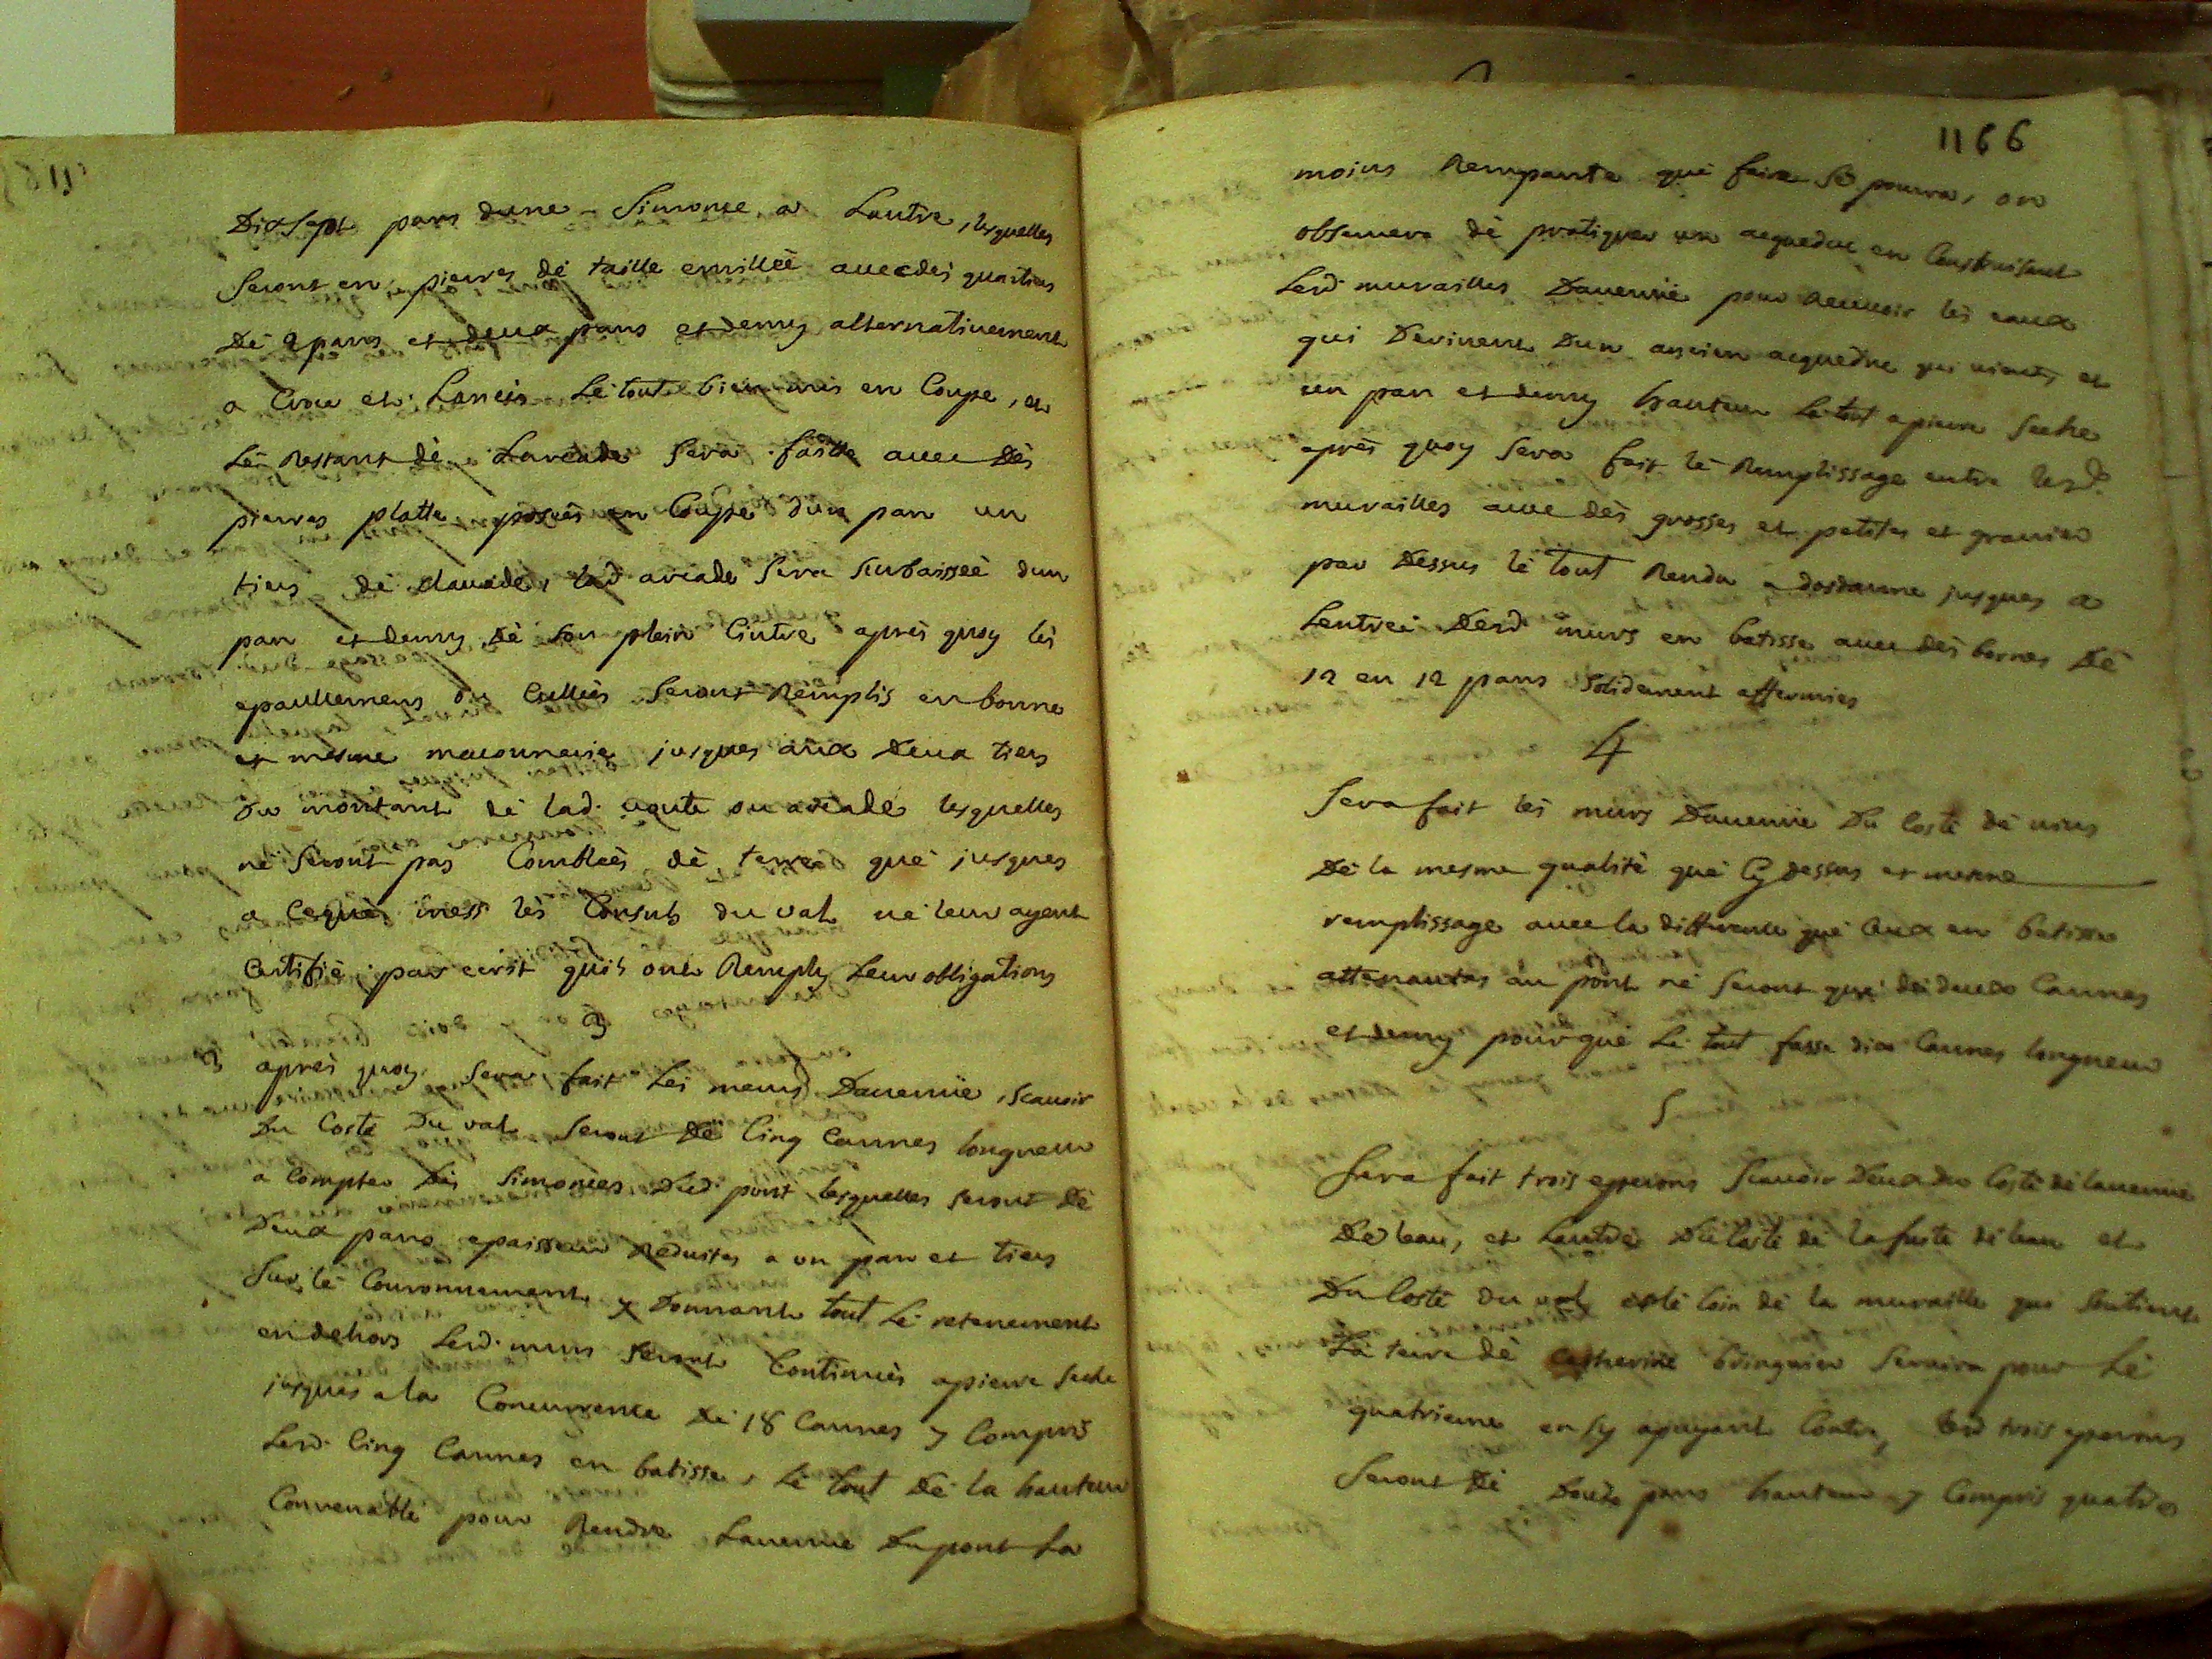 Dixsept pans dune Simonce a Lautre, lesquelles
Seront en pierres dé taille emillèé avec dès quartiers
Dé 2 pans et deux pans et demy alternativement
a Croc et Lancis Lé tout bien mis en Coupe, et
Lé Restant dè Larcade Sera faitte avec Dès
pierres platte posées en Coupe dun pan un
tiers dé clauade, lad arcade Sera Surbaisseé dun
pan et demy dé son plein Cintre aprés quoy lés
epaullemens ou Cullées Seront Remplis en bonne
et mesme maconnerie jusques aux Deux tiers
Du montant dé lad. voute ou arcade lesquelles
né Seront pas Comblées dé terre qué jusques
a Cequé mess lés Consuls du val né leur ayent
Certifié par ecrit quils ont Remply Leur obligations
3
3 aprés quoy Sera fait Lés meurs Davenüe, scavoir
Du Costé Du val Seront Dé Cinq Cannes longueur
a Compter Dés Simonces Dud. pont lesquelles seront dé
Deux pans epaisseur Reduites a un pan et tiers
Sur lé Couronnement y Donnant tout Lé retenement
en dehors Lesd. murs Seront Continués a pierre seche
jusques a la Concurrence Dé 18 Cannes y Compris
Lesd. Cinq Cannes en batisse, Lé tout Dé la hauteur
Convenablé pour Rendre Lavenue Du pont La
1166
moins Rempante qué faire Sé pourra, on
observera dé pratiquer un acqueduc en Construisant
Lesd. murailles Davenüe pour Recevoir lés eaux
qui Derivent Dun ancien acqueduc qui et
un pan et demy hauteur Lé tout a pierre Seche
après quoy Sera fait lé Remplissage entre lesd.
murailles avec dés grosses et petites et gravier
par Dessus lé tout Rendu a dosdanne jusques a
Lentreé Desd murs en batisse avec dès bornes Dé
12 en 12 pans Solidement affermies
4
Sera fait lés murs Davenüe Du Costé dé vins
Dé la mesme qualité qué Cy dessus et mesme
remplissage avec la difference qué Ceux en batisse
attenantes au pont né Seront qué dé deux Cannes
et demy pour qué Lé tout fasse dix Cannes longueur
5
Sera fait trois epperons Scavoir Deux Du Costé dé lavenue
De leau, et Lautre Du Costé dé la fuite dé leau et
Du Costé du val et lé Coin dé la muraille qui Soutient
La terre dé Catherine Bringuier Servira pour Lé
quatrieme en sy apuyant Contre, Lesd trois eperons
Seront Dé Douze pans hauteur y Compris quatre